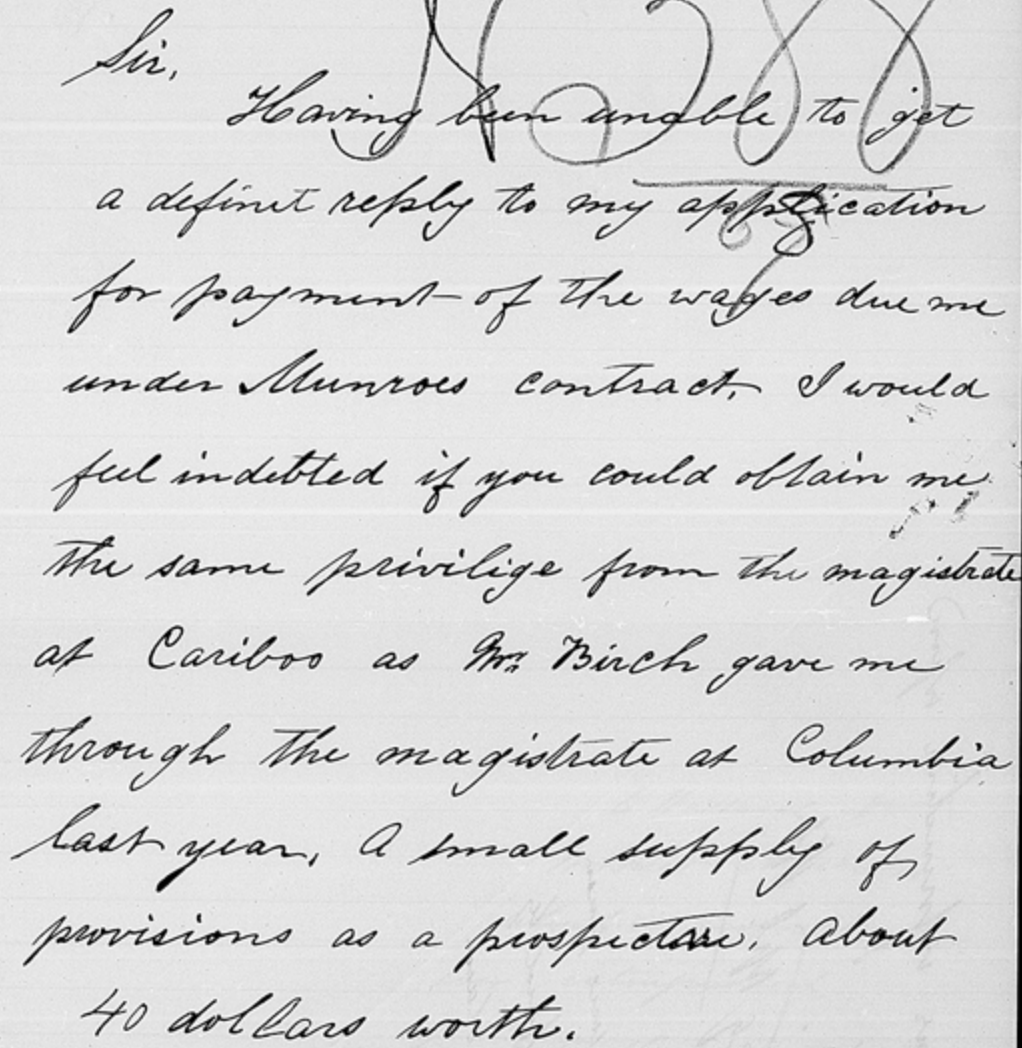 Sir,
Having been unable to get
a definit reply to my application
for payment of the wages due me
under Munroes contract, I would
feel indebted if you could obtain me
the same privilige from the magistrate
at Cariboo as Mr. Birch gave me
through the magistrate at Columbia
last year, A small supply of
provisions as a prospector, about
40 dollars worth.